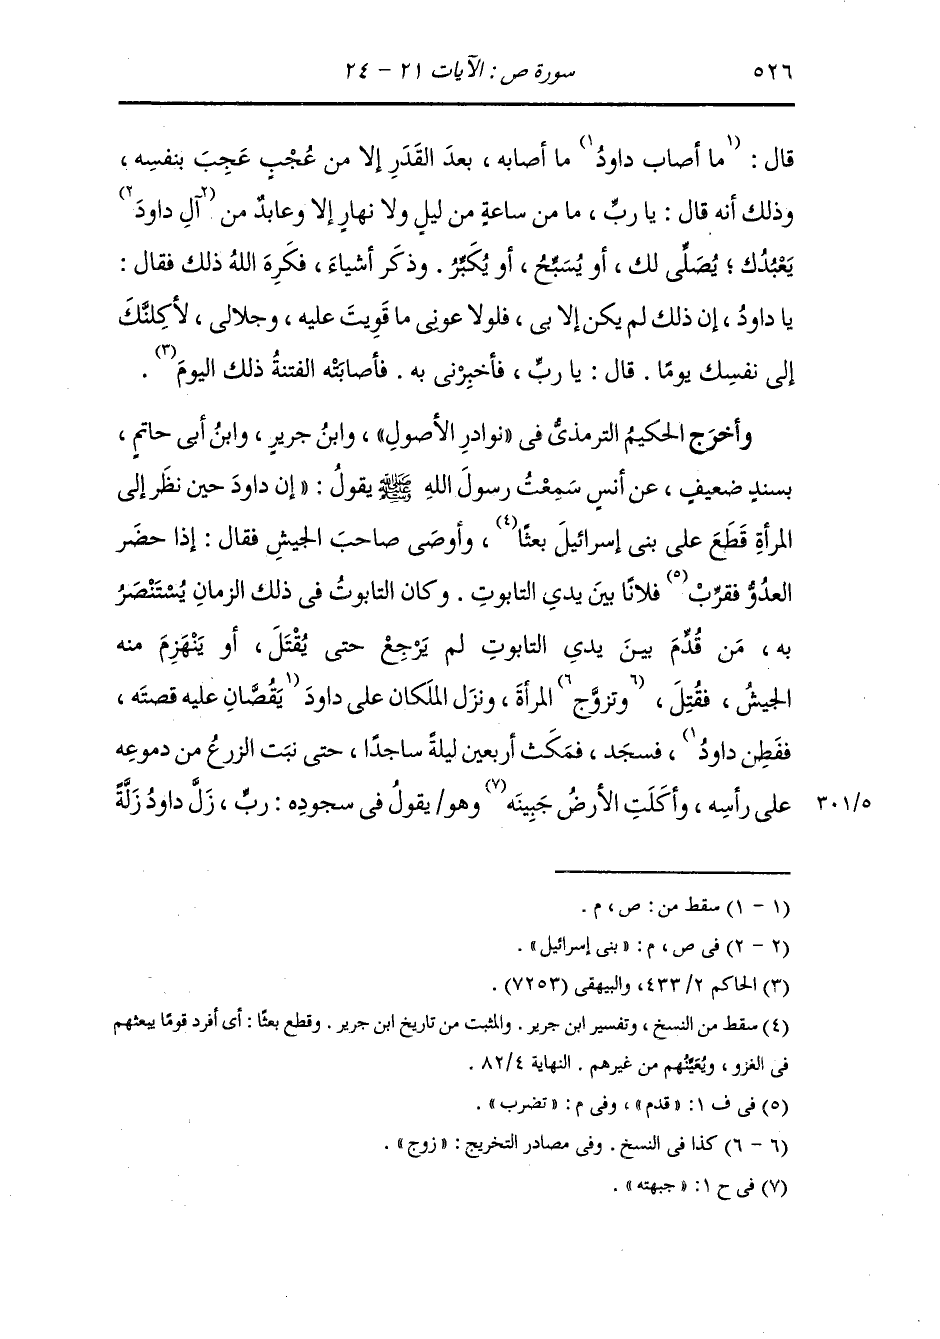 ٥٢٦ سورة ص : الآيات ٢١ - ٢٤
قال : (١ما أصاب داودُ١) ما أصابه ، بعدَ القَدَرِ إلا من عُجْبٍ عَجِبَ بنفسِه ،
وذلك أنه قال : يا ربِّ ، ما من ساعةٍ من ليلٍ ولا نهارٍ إلا وعابدٌ من (٢آلِ داودَ٢)
يَعْبُدُك ؛ يُصَلِّى لك ، أو يُسَبِّحُ ، أو يُكَبِّرُ . وذكَر أشياءَ ، فكَرِه اللهُ ذلك فقال :
يا داودُ ، إن ذلك لم يكن إلا بى ، فلولا عونِى ما قَوِيتَ عليه ، وجلالى ، لأَكِلنَّكَ
إلى نفسِك يومًا . قال : يا ربِّ ، فأَخبِرْنى به . فأصابَتْه الفتنةُ ذلك اليومَ(٣) .
وأخرَج الحكيمُ الترمذىُّ فى «نوادرِ الأصولِ» ، وابنُ جريرٍ ، وابنُ أبى حاتمٍ ،
بسندٍ ضعيفٍ ، عن أنسٍ سَمِعْتُ رسولَ اللهِ ﷺ يقولُ : «إن داودَ حين نظَر إلى
المرأةِ قَطَعَ على بنى إسرائيلَ بعثًا(٤) ، وأوصَى صاحبَ الجيشِ فقال : إذا حضَر
العدُوُّ فقرِّبْ(٥) فلانًا بينَ يديِ التابوتِ . وكان التابوتُ فى ذلك الزمانِ يُسْتَنْصَرُ
به ، مَن قُدِّمَ بينَ يديِ التابوتِ لم يَرْجِعْ حتى يُقْتَلَ ، أو يَنْهَزِمَ منه
الجيشُ ، فقُتِلَ ، (٦وتزوَّج٦) المرأةَ ، ونزَل الملَكان على داودَ (١يَقُصَّانِ عليه قصتَه ،
ففَطِن داودُ١) ، فسجَد ، فمَكَث أربعين ليلةً ساجدًا ، حتى نبَت الزرعُ من دموعِه
على رأسِه ، وأكَلَتِ الأرضُ جَبِينَه(٧) وهو/ يقولُ فى سجودِه : ربِّ ، زَلَّ داودُ زَلَّةً ٣٠١/٥
(١ - ١) سقط من : ص ، م .
(٢ - ٢) فى ص ، م : «بنى إسرائيل» .
(٣) الحاكم ٢/ ٤٣٣، والبيهقى (٧٢٥٣) .
(٤) سقط من النسخ ، وتفسير ابن جرير . والمثبت من تاريخ ابن جرير . وقطع بعثًا : أى أفرد قومًا يبعثهم
فى الغزو ، ويُعَيِّنُهم من غيرهم . النهاية ٨٢/٤ .
(٥) فى ف ١: «قدم» ، وفى م : «تضرب» .
(٦ - ٦) كذا فى النسخ . وفى مصادر التخريج : «زوج» .
(٧) فى ح ١: «جبهته» .